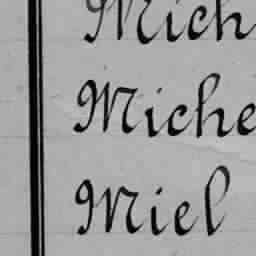 Mich
Miche
Miel